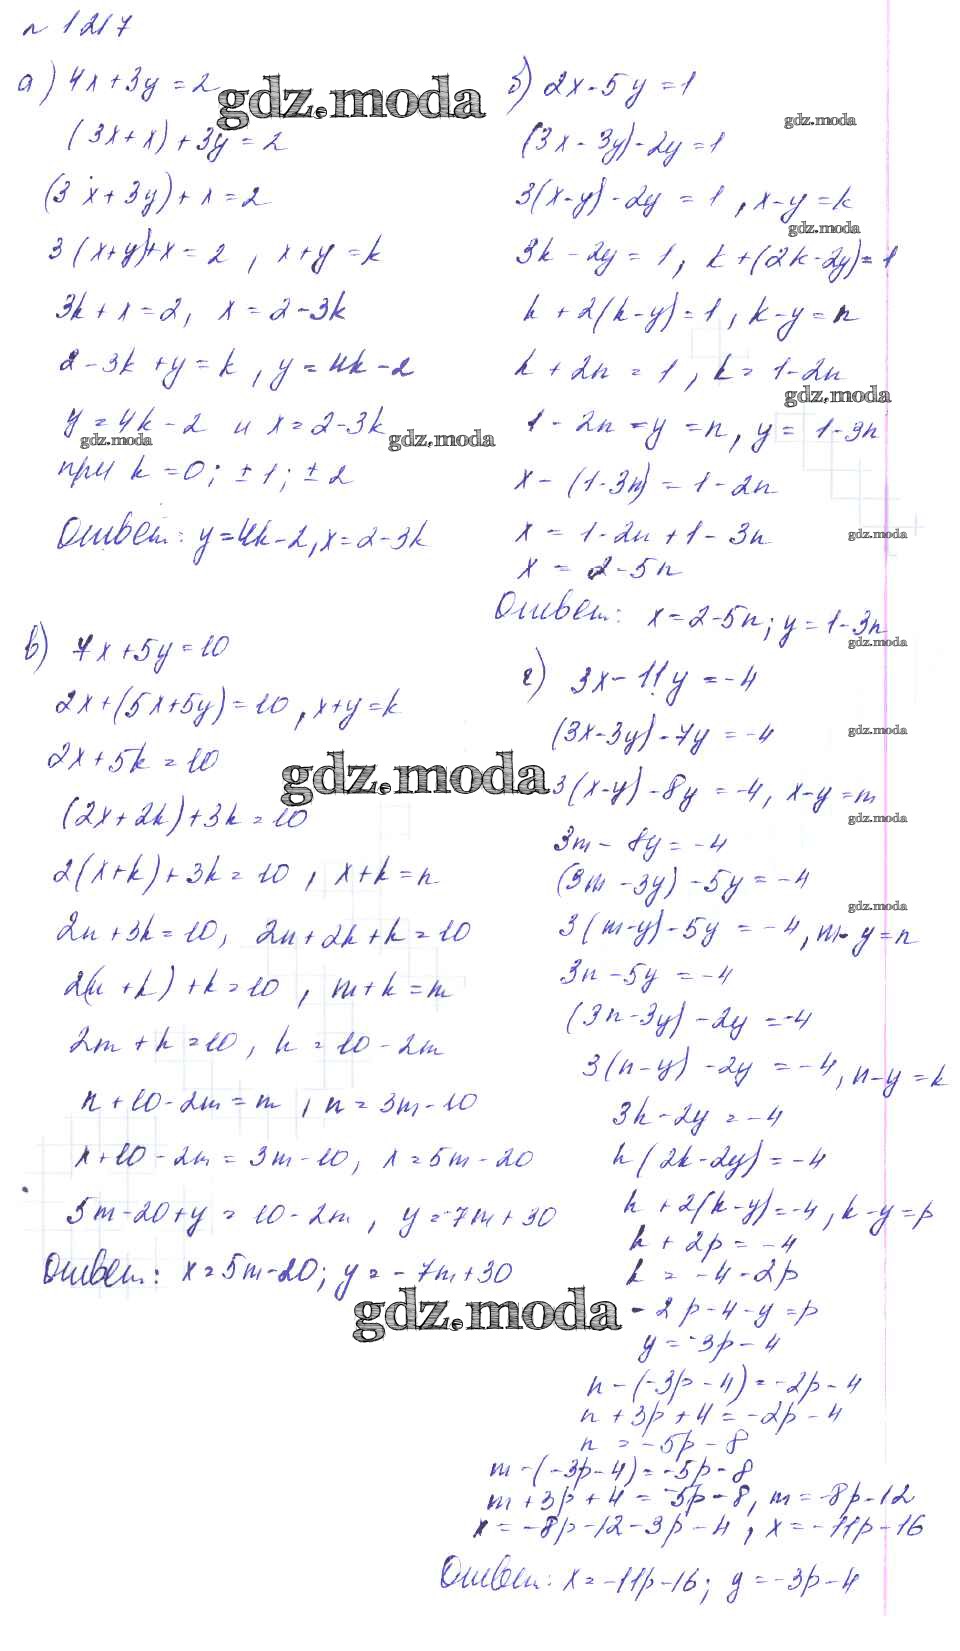 n 1217
а) 4x+3y=2
(3x+x)+3y=2
(3x+3y)+x=2
3(x+y)+x=2, x+y=k
3k+x=2, x=2-3k
2-3k+y=k, y=4k-2
y=4k-2 и x=2-3k
при k=0; ±1; ±2
Ответ: y=4k-2, x=2-3k
б) 2x-5y=1
(3x-3y)-2y=1
3(x-y)-2y=1, x-y=k
3k-2y=1, k+(2k-2y)=1
k+2(k-y)=1, k-y=n
k+2n=1, k=1-2n
1-2n-y=n, y=1-3n
x-(1-3n)=1-2n
x=1-2n+1-3n
x=2-5n
Ответ: x=2-5n; y=1-3n
в) 7x+5y=10
2x+(5x+5y)=10, x+y=k
2x+5k=10
(2x+2k)+3k=10
2(x+k)+3k=10, x+k=n
2n+3k=10, 2n+2k+k=10
2(n+k)+k=10, m+k=m
2m+k=10, k=10-2m
n+10-2m=m, n=3m-10
x+10-2m=3m-10, x=5m-20
5m-20+y=10-2m, y=-7m+30
Ответ: x=5m-20; y=-7m+30
г) 3x-11y=-4
(3x-3y)-7y=-4
3(x-y)-8y=-4, x-y=m
3m-8y=-4
(3m-3y)-5y=-4
3(m-y)-5y=-4, m-y=n
3n-5y=-4
(3n-3y)-2y=-4
3(n-y)-2y=-4, n-y=k
3k-2y=-4
k(2k-2y)=-4
k+2(k-y)=-4, k-y=p
k+2p=-4
k=-4-2p
-2p-4-y=p
y=-3p-4
n-(-3p-4)=-2p-4
n+3p+4=-2p-4
n=-5p-8
m-(-3p-4)=-5p-8
m+3p+4=-5p-8, m=-8p-12
x=-8p-12-3p-4, x=-11p-16
Ответ: x=-11p-16; y=-3p-4
gdz.moda
gdz.moda
gdz.moda
gdz.moda
gdz.moda
gdz.moda
gdz.moda
gdz.moda
gdz.moda
gdz.moda
gdz.moda
gdz.moda
gdz.moda